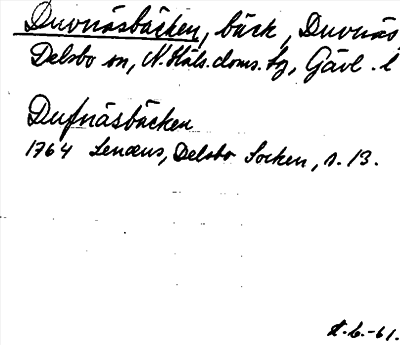 Duvnäsbäcken, bäck, Duvnäs,
Delsbo sn, N. Häls. doms. tg, Gävl. l
Dufnäsbäcken
1764 Lenæus, Delsbo Socken, s. 13.